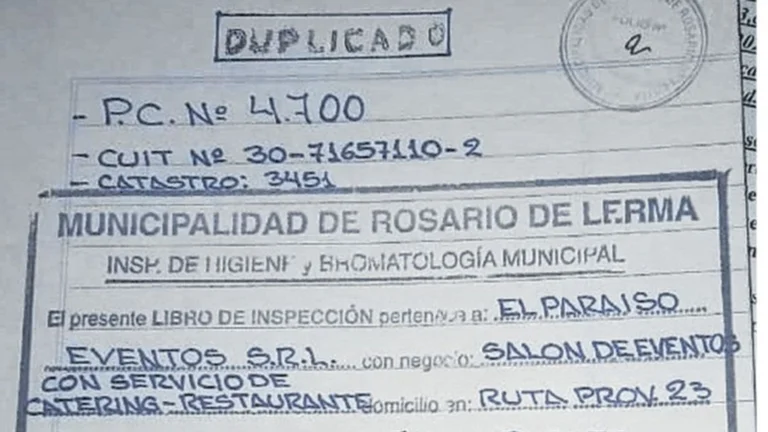 DUPLICADO
- P.C. Nº 4.700
- CUIT Nº 30-71657110-2
- CATASTRO: 3451
MUNICIPALIDAD DE ROSARIO DE LERMA
INSP. DE HIGIENE y BROMATOLOGÍA MUNICIPAL
El presente LIBRO DE INSPECCIÓN pertenece a: EL PARAISO
EVENTOS S.R.L. con negocio: SALON DE EVENTOS
CON SERVICIO DE
CATERING-RESTAURANTE domicilio en: RUTA PROV. 23